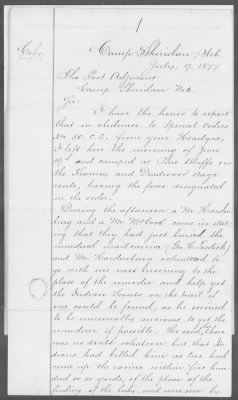 1
Copy.
Camp Sheridan, Neb.
July 9, 1877
The Post Adjutant
Camp Sheridan Neb.
Sir:
I have the honor to report
that in obedience to Special Orders
No 50. C.S. from your Headqrs,
I left here the morning of June
and camped at Pine Bluffs on
the Kearney and Deadwood stage
route, having the force designated
in the order.
During the afternoon a Mr Harden-
burg and a Mr McCool came in stat-
ing that they had just buried the
murdered mail carrier (Geo. C.
and Mr. Hardenburg volunteered to
go with us next morning to the
place of the murder and help get
the Indian Scouts on the trail if
one could be found, as he seemed
to be unusually anxious to get the
murderer if possible. He said there
was no doubt whatever but that In-
dians had killed him as two had
come up the ravine within five hun-
dred or so yards, of the place of the
finding of the body and were seen by